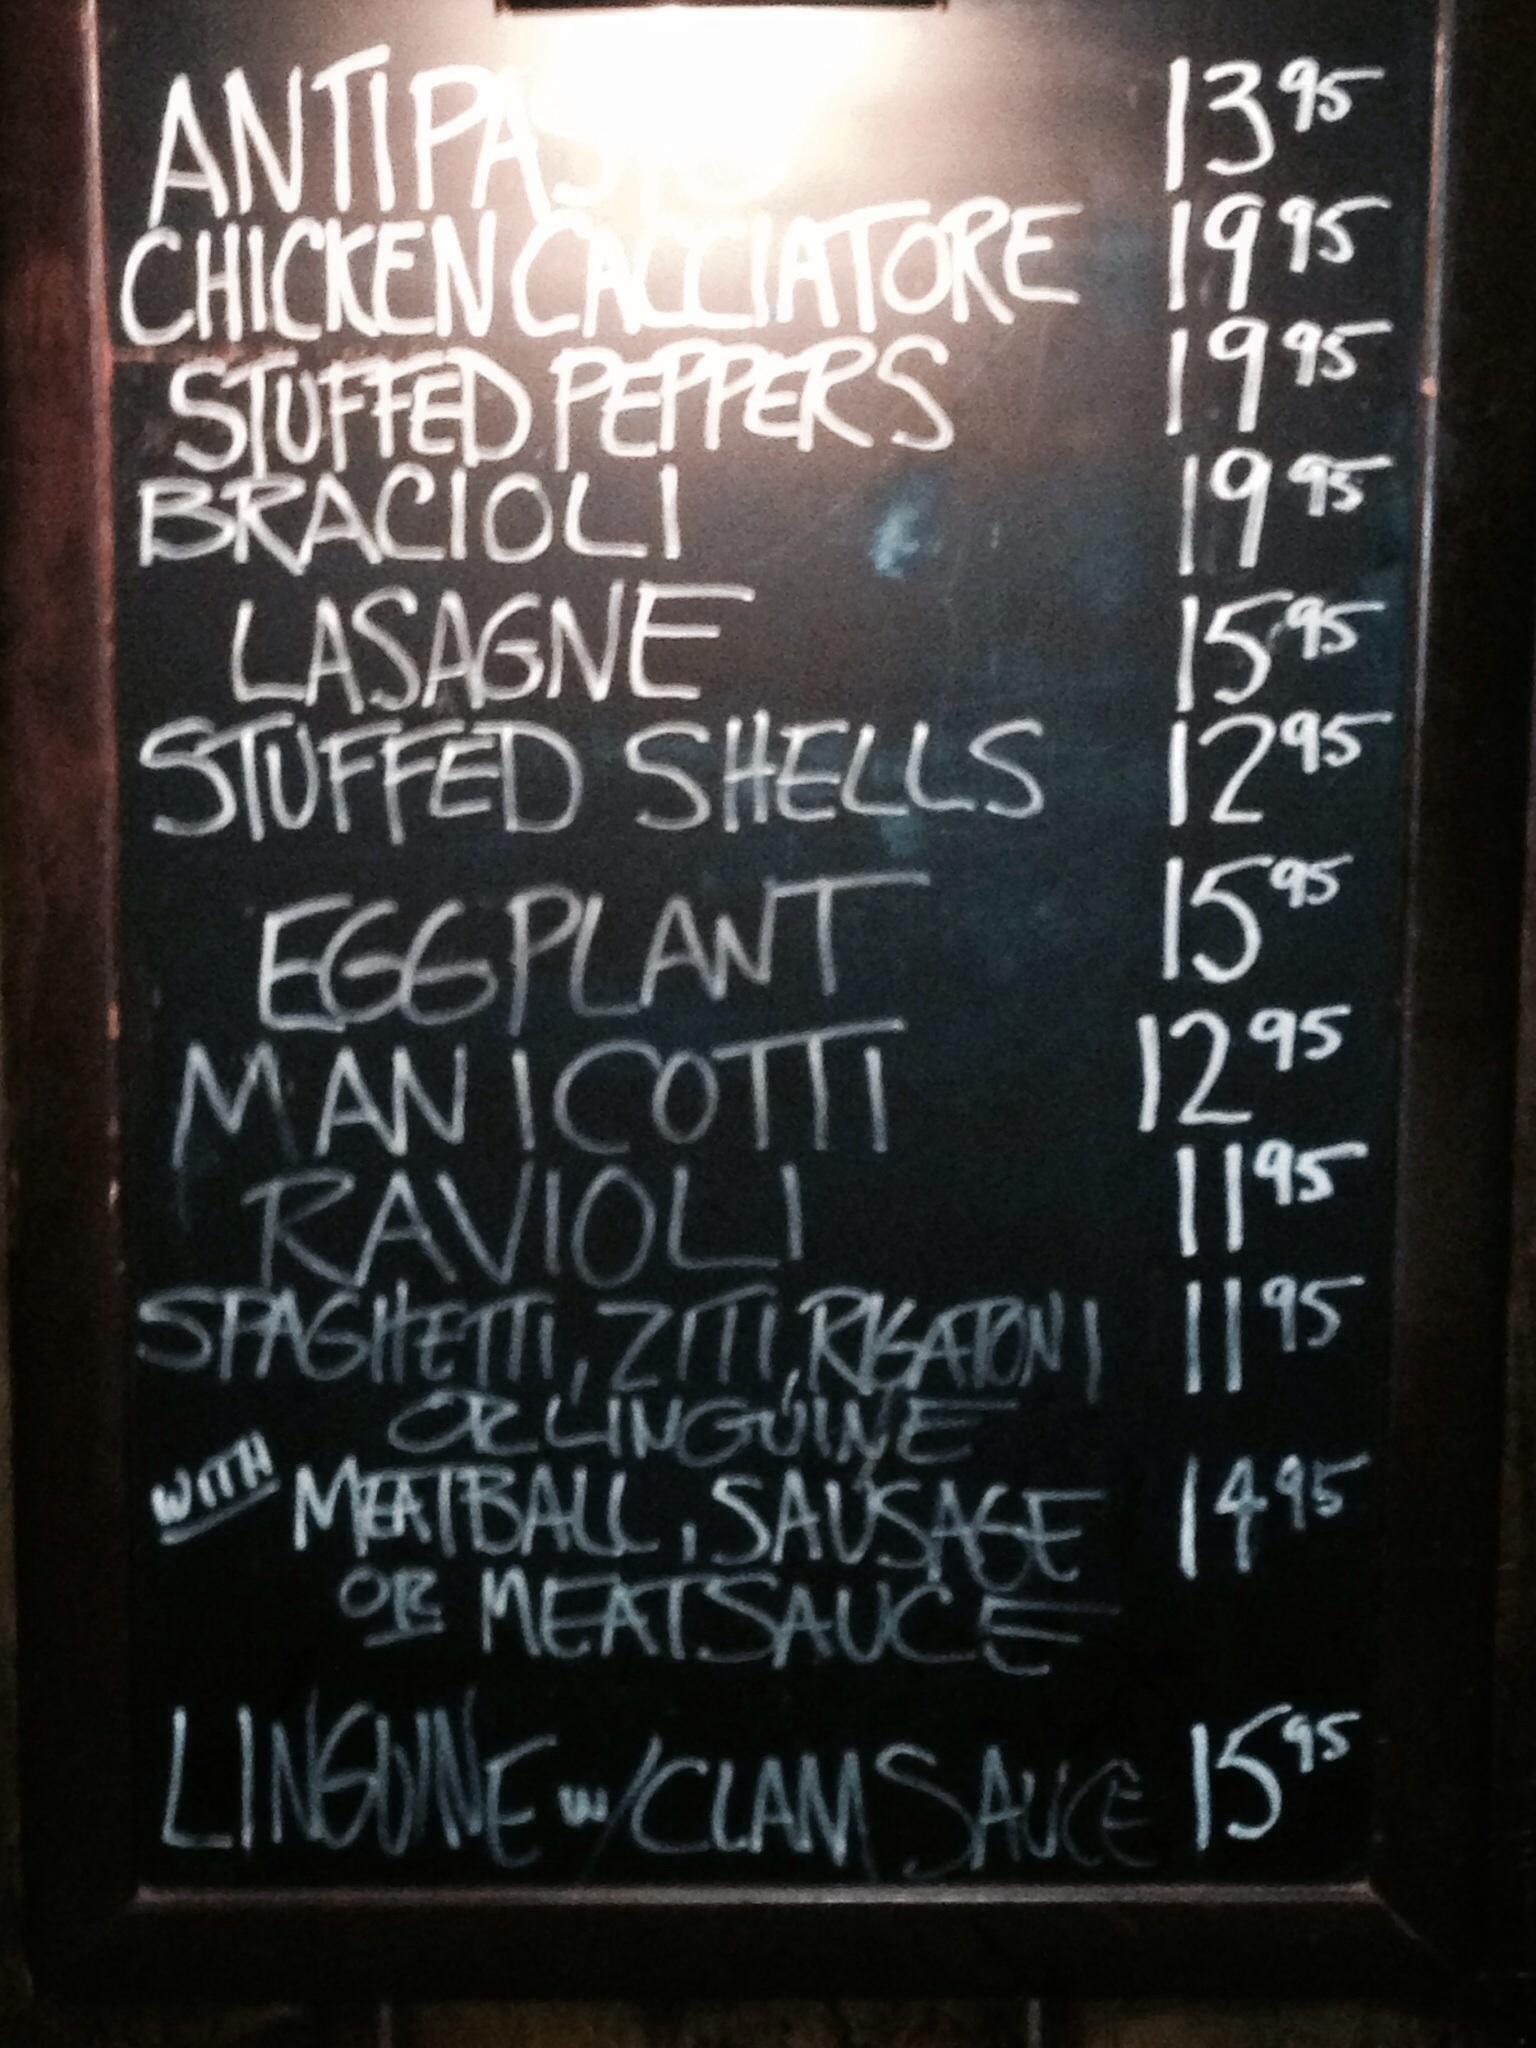 ANTIPASTO 13 95
CHICKEN CACCIATORE 19 95
STUFFED PEPPERS 19 95
BRACIOLI 19 95
LASAGNE 15 95
STUFFED SHELLS 12 95
EGGPLANT 15 95
MANICOTTI 12 95
RAVIOLI 11 95
SPAGHETTI, ZITI, RIGATONI 11 95
OR LINGUINE
WITH MEATBALL, SAUSAGE 14 95
OR MEATSAUCE
LINGUINE w/CLAM SAUCE 15 95